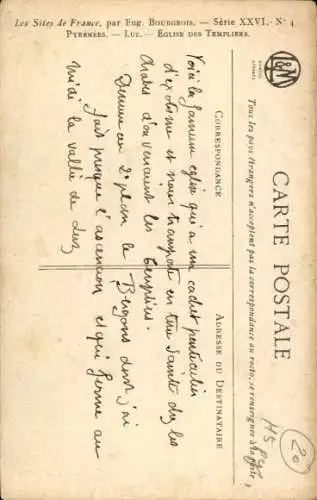 Les Sites de France, par Eug. Bourgeois. — Série XXVI. - N° 4
Pyrénées. — Luz. — Église des Templiers.
CARTE POSTALE
Tous les pays étrangers n'acceptent pas la correspondance au recto, se renseigner à la poste
Correspondance
Adresse du Destinataire
Voici la fameuse église qui a un cachet particulier
d'exotisme et nous transporte en terre sainte chez les
Arabes d'où venaient les templiers.
Derrière au 2e plan le Bergons dont j'ai
fait presque l'ascension et qui ferme au
midi la vallée de Luz
20